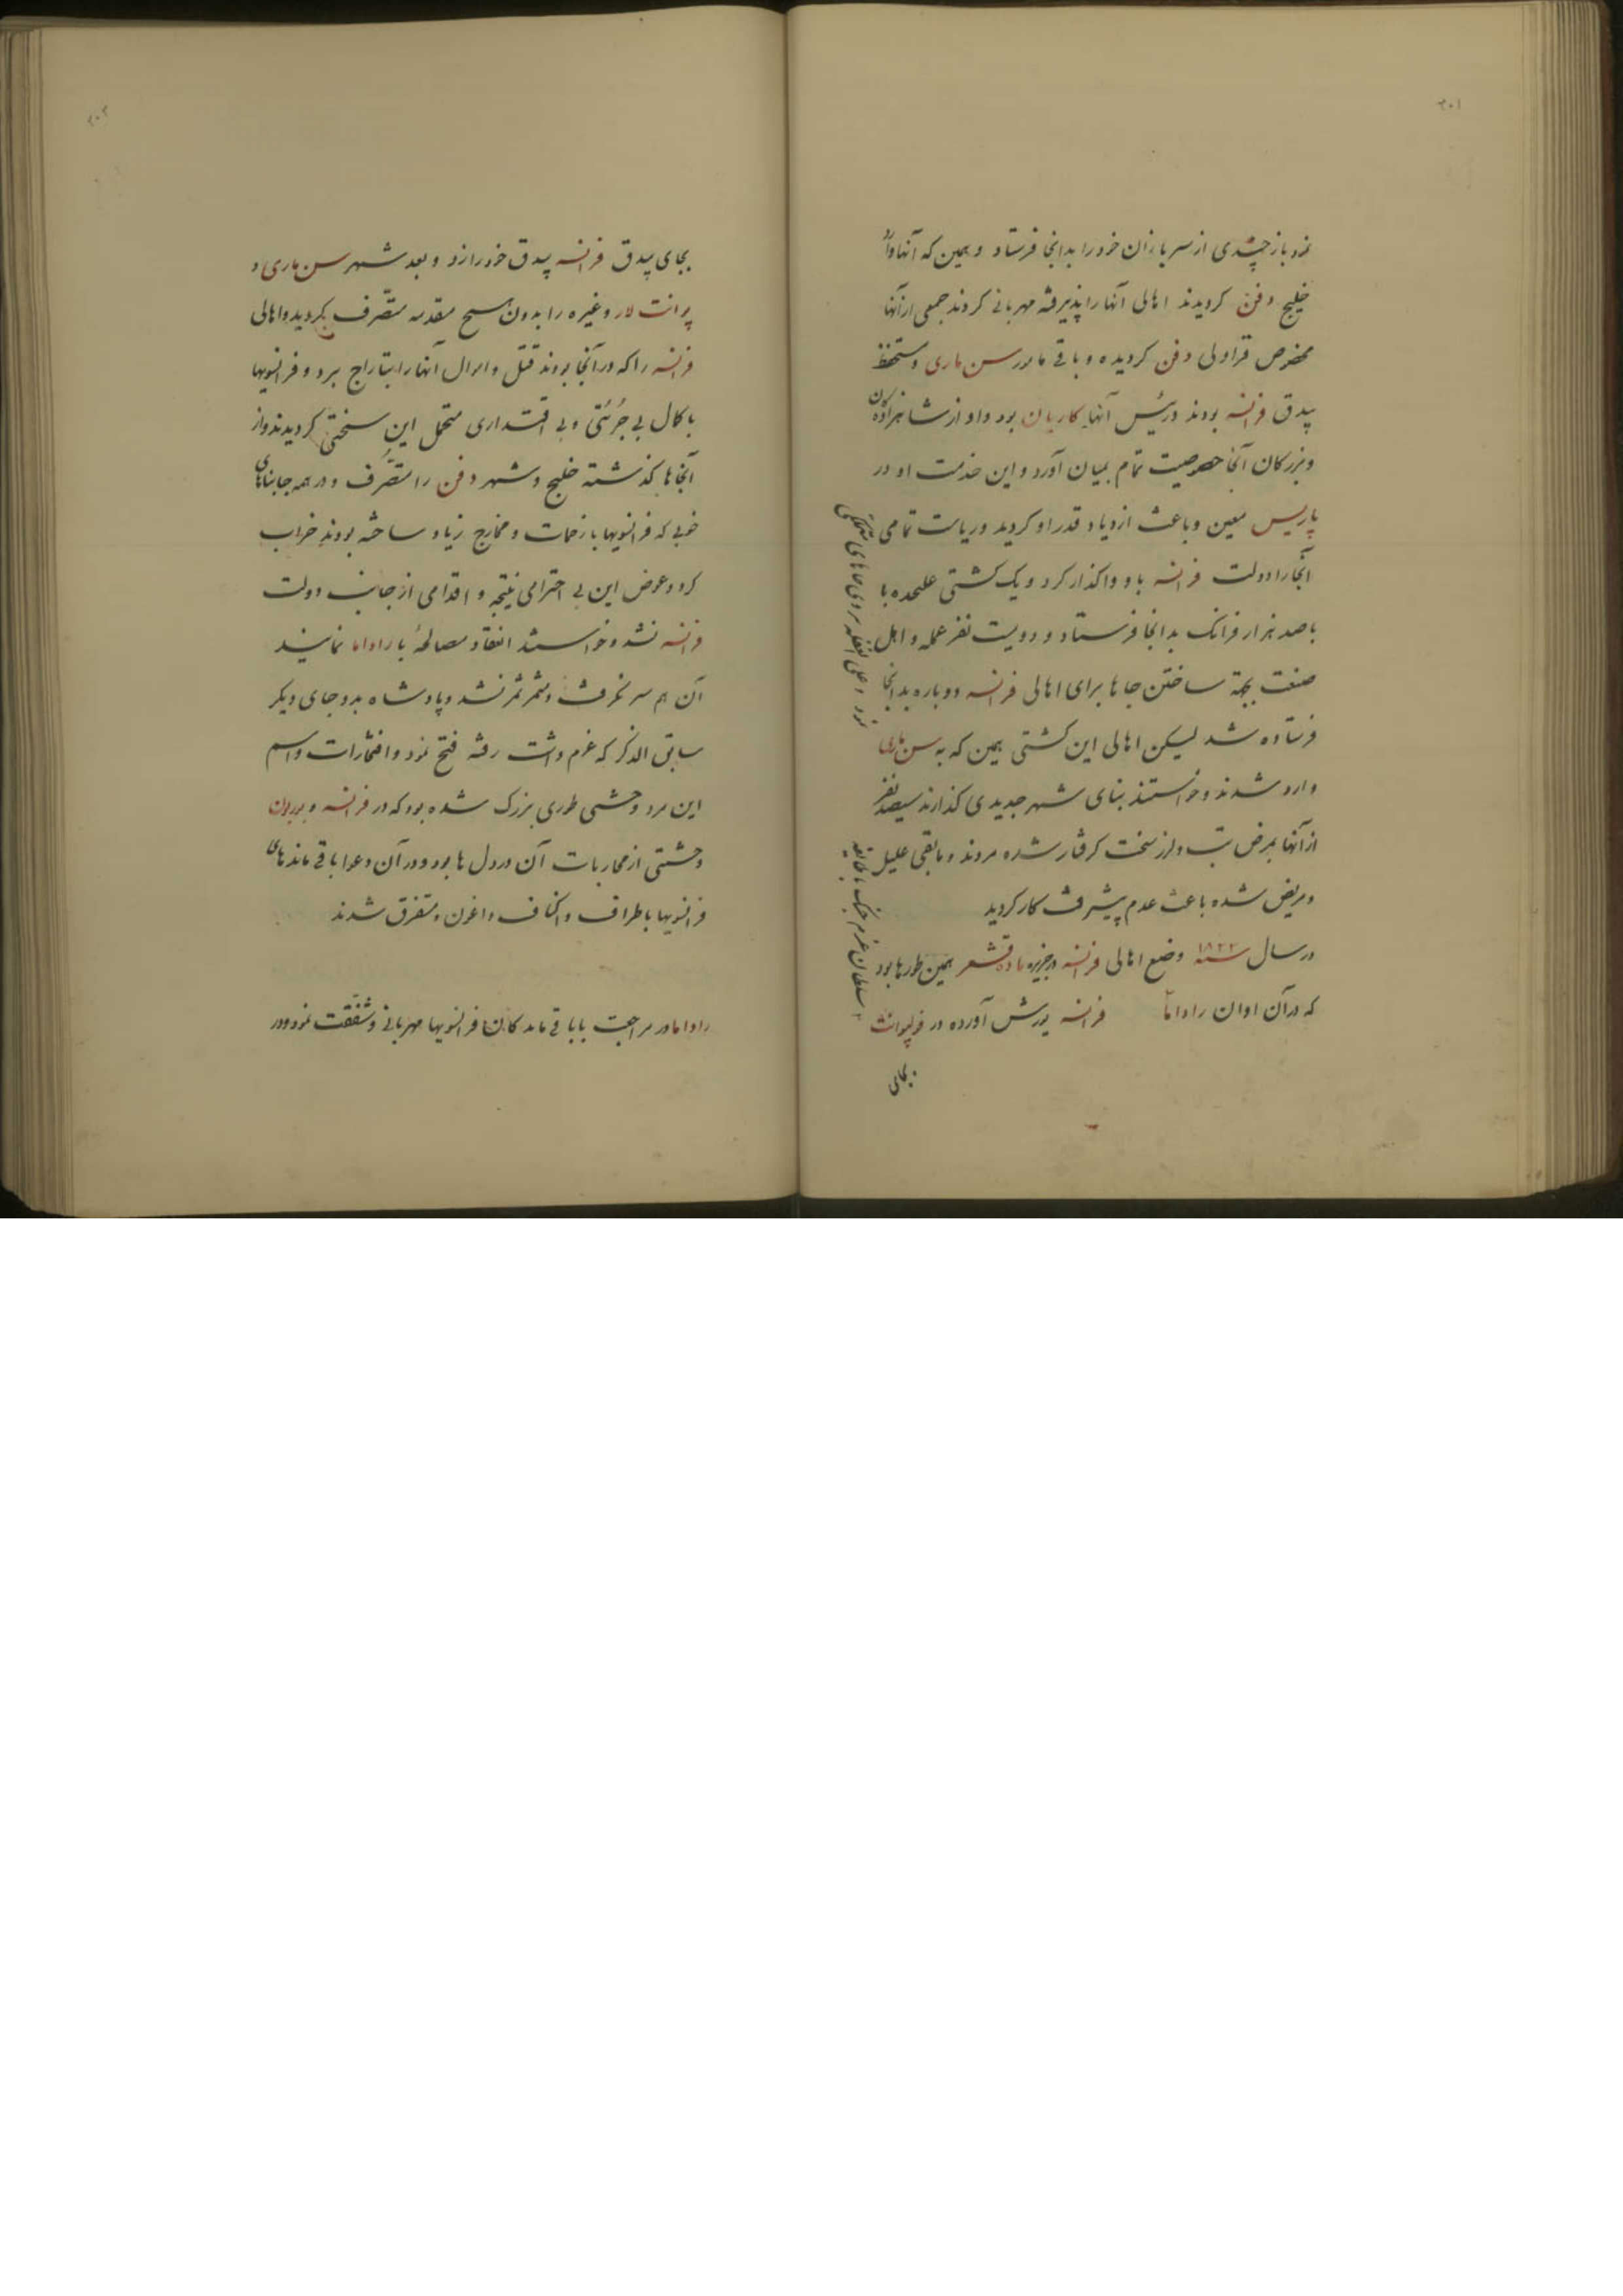 ۳۰۱
نمود باز چندی از سربازان خود را بدانجا فرستاد و همین که آنها وارد
خلیج دفن کردیدند اهالی آنها را پذیرفته مهربانی کردند جمعی از آنها
مخصوص قراولی دفن کردیده و باقی مامور سن ماری و مستحفظ
بیدق فرانسه بودند و رئیس آنها کاریان بود و او از شاهزاده کان
و بزرکان آنجا خصوصیت تمام بمیان آورد و این خدمت او در
پاریس معین و باعث ازدیاد قدر او کردید و ریاست تمامی
آنجا را دولت فرانسه باو واکذار کرد و یک کشتی علیحده با
با صد هزار فرانک بدانجا فرستاد و دویست نفر عمله و اهل
صنعت بجهة ساختن جاها برای اهالی فرانسه دوباره بدانجا
فرستاده شد لیکن اهالی این کشتی همین که به سن ماری
وارد شدند و خواستند بنای شهر جدیدی کذارند سیصد نفر
از آنها بمرض تب و لرز سخت کرفتار شده مردند و مابقی علیل
و مریض شده باعث عدم پیشرفت کار کردید
در سال سنه ۱۸۲۲ وضع اهالی فرانسه در جزیره ماده قشقر همین طورها بود
که در آن اوان راداما فرانسه یورش آورده در فولپوانت
بجای
سلطان عزم جنک با
نمود و علی الغفله بروی جاهای متملکی
۳۰۲
بجای بیدق فرانسه بیدق خود را زد و بعد شهر سن ماری و
پرانت لار و غیره را بدون هیچ مقدمه متصرف کردید و اهالی
فرانسه را که در آنجا بودند قتل و اموال آنها را بتاراج برد و فرانسویها
با کمال بی جرئتی و بی اقتداری متحمل این سختی کردیدند و از
آنجاها کذشته خلیج و شهر دفن را متصرف و در همه جا بناهای
خوبی که فرانسویها با زحمات و مخارج زیاد ساخته بودند خراب
کرد و عوض این بی احترامی نتیجه و اقدامی از جانب دولت
فرانسه نشد و خواستند انعقاد مصالحهٔ با راداما نمایند
آن هم سر نکرفت و مثمر ثمر نشد و پادشاه بدو جای دیکر
سابق الذکر که عزم داشت رفته فتح نمود و افتخارات و اسم
این مرد وحشی طوری بزرک شده بود که در فرانسه و بوربون
وحشتی از محاربات آن در دل ها بود و در آن دعوا باقی مانده‌های
فرانسویها باطراف و اکناف داغون و متفرق شدند
راداما در مراجعت با باقی مانده کان فرانسویها مهربانی و شفقت نمود و در